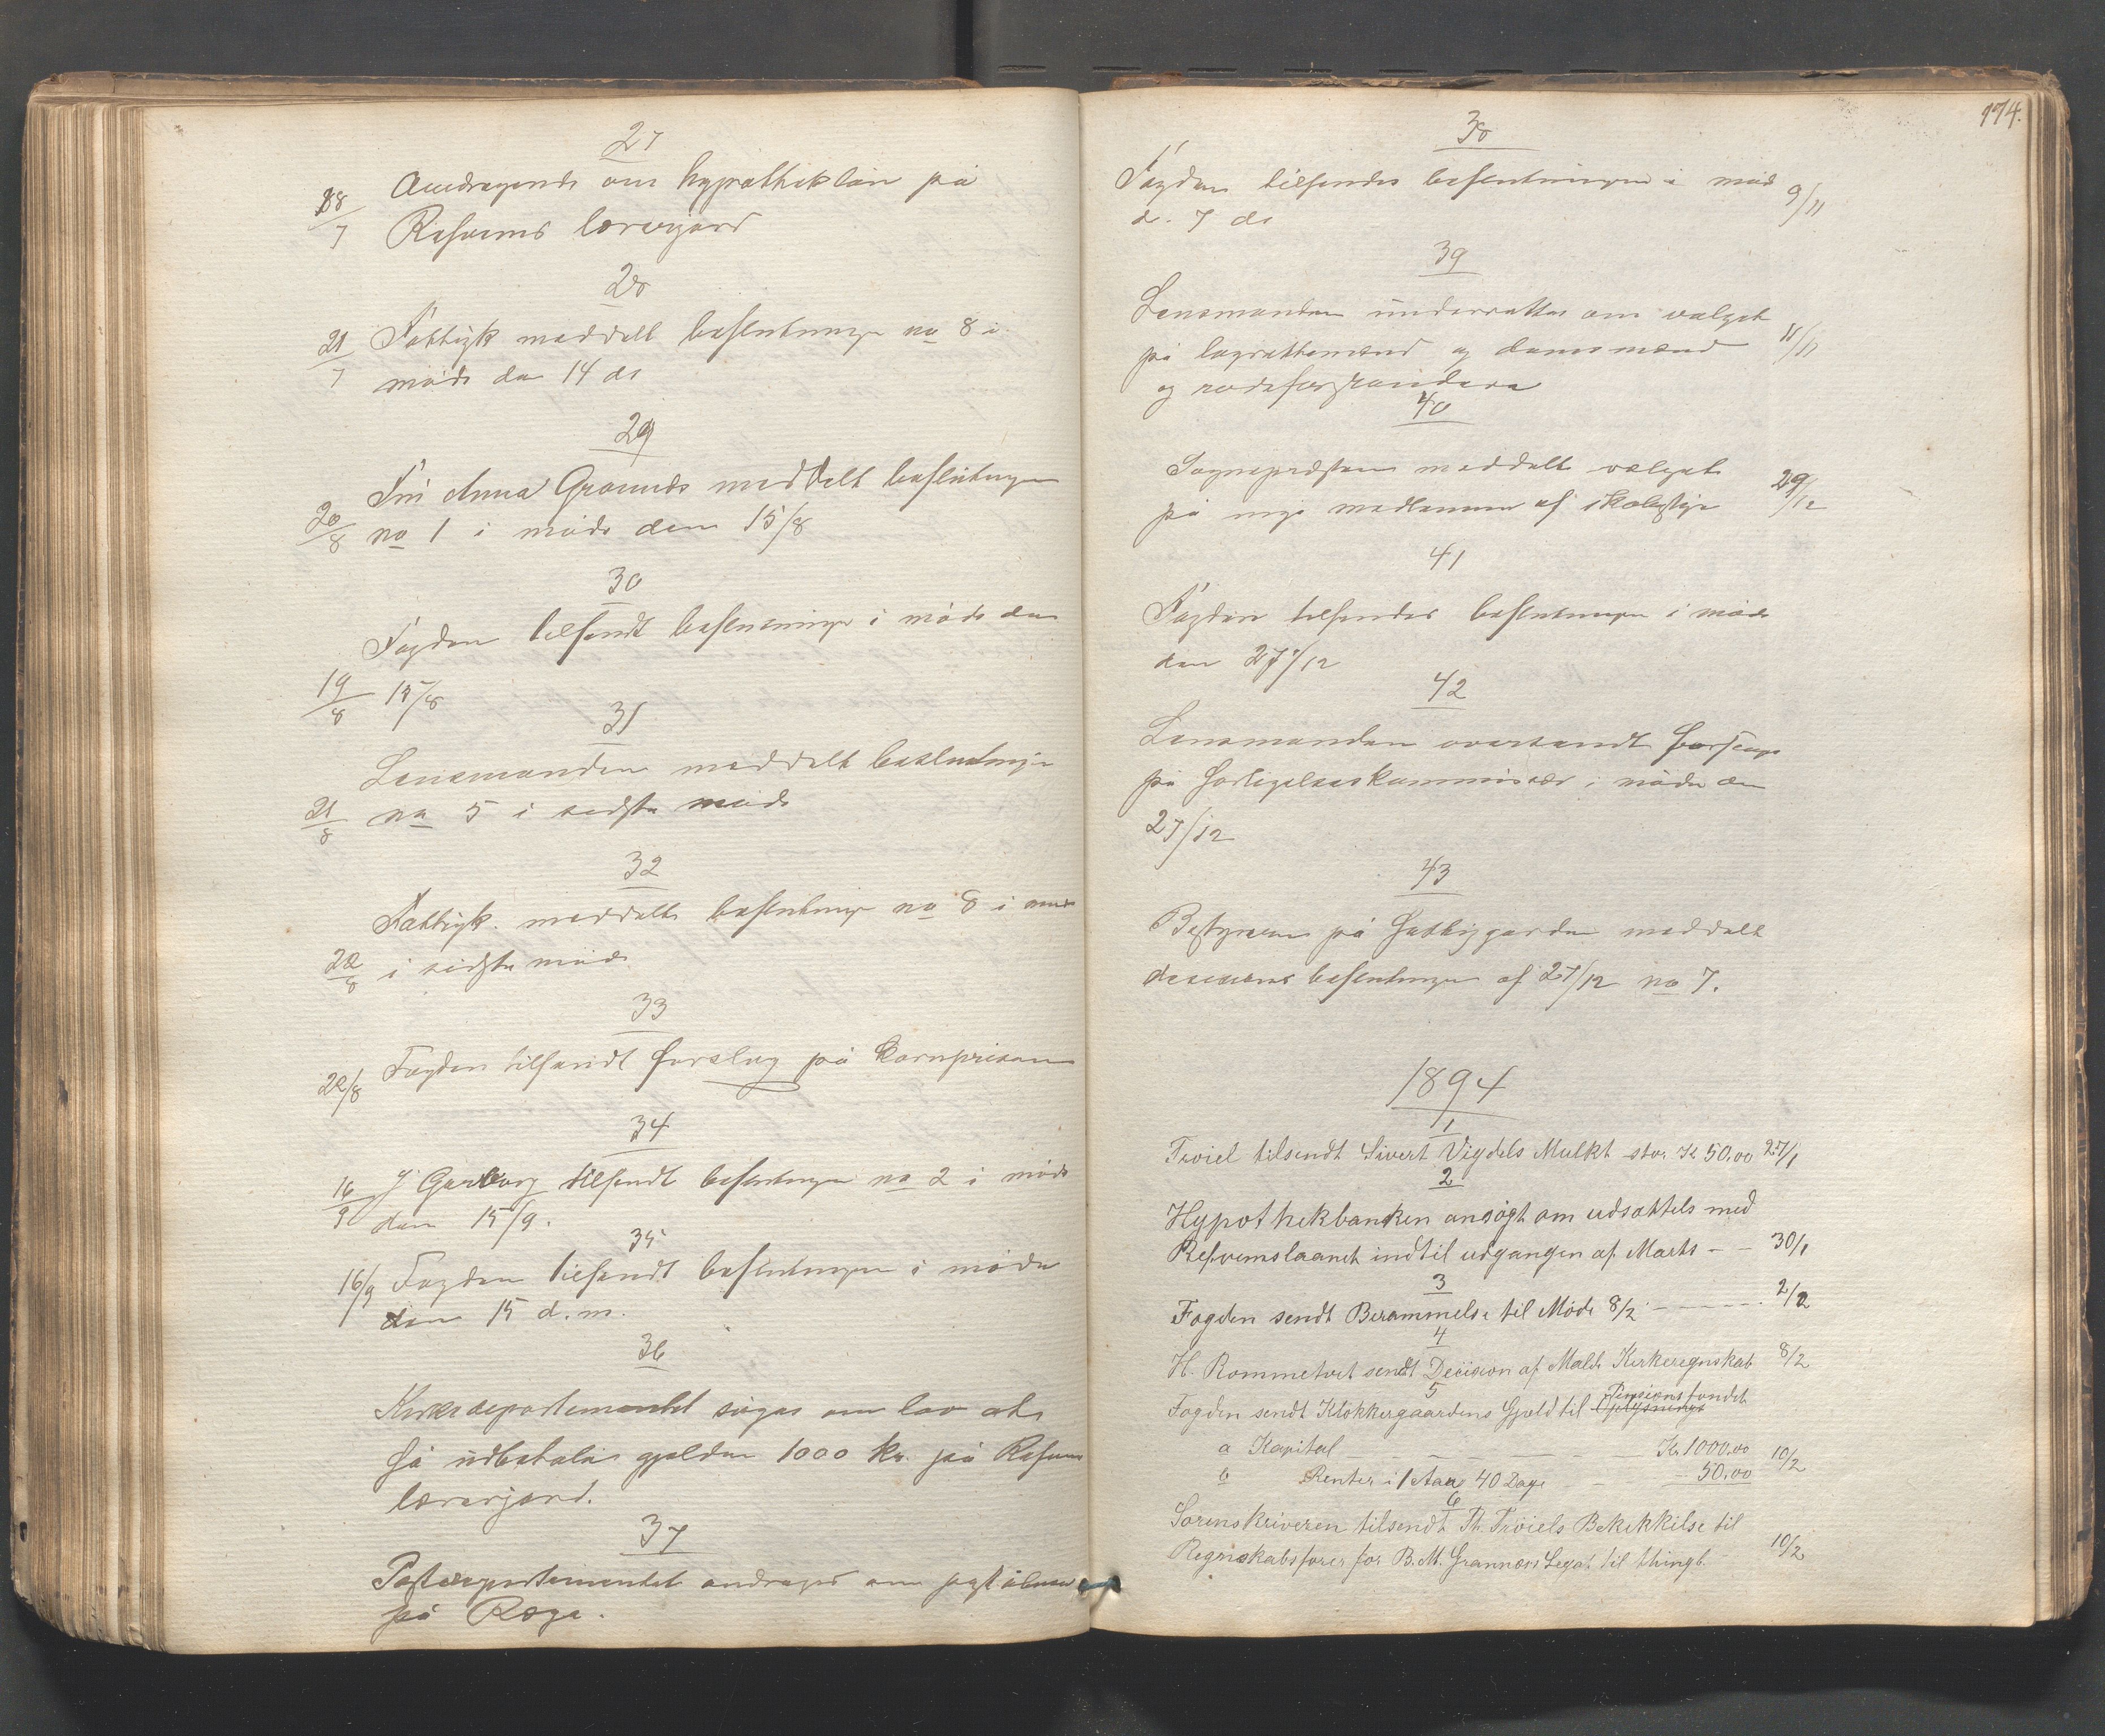 27
18/7 Andragende om hypotheklån på
Refsvems lærerjord
28
21/7 Fattigk meddelt beslutningen no 8 i
møde den 14 ds
29
Frú Anna Grannæs meddelt beslutningen
20/8 no 1 i møde den 15/8
30
Fogden tilsendt beslutninger i møde den
19/8 15/8
31
Lensmanden meddelt beslutninge
21/8 no 5 i sidste møde
32
Fattigk. meddelt beslutninge no 8 i
22/8 i sidste møde
33
22/8 Fogden tilsendt forslag på kornprisen
34
16/9 J Garborg tilsendt beslutningen no 2 i møde
den 15/9.
35
16/9 Fogden tilsendt beslutningen i møde
den 15 d. m.
36
Kirkedepartementet søges om lov at
få udbetale gjælden 1000 kr. på Refsvem
lærerjord.
37
Postdepartementet andrages om poståbneri
på Ræge.
174.
38
Fogden tilsendes beslutningen i møde 9/11
d. 7 ds
39
Lensmanden underrettes om valget
på lagrettemænd og domsmænd 11/11
og rodeforstandere
40
Sognepresten meddelt valget 29/12
på nye medlemmer af skolestyre
41
Fogden tilsendes beslutningen i møde
den 27/12
42
Lensmanden oversendt forslag
på forligelseskommissær i møde den
27/12
43
Bestyreren på fattiggården meddelt
beslutningen af 27/12 no 7.
1894
1
Troiel tilsendt Sivert Vigdels Mulkt stor. Kr 50.00 27/1
2
Hypothekbanken ansøgt om udsættels med
Refsvemslaanet indtil udgangen af Marts - - 30/1
3
Fogden sendt Berammelse til Møde 8/2 - - - - - 2/2
4
H. Rommetvet sendt Decision af Malde Kirkeregnskab 8/2
5
Fogden sendt Klokkergaardens Gjæld til Oplysnings Pensionsfondet
a Kapital - - - - - Kr 1000.00 10/2
b Renter i 1 Aar 40 Dage - - - 50.00
6
Sorenskriveren tilsendt Th. Trøiels Bekekkilse til
Regnskabsfører for B. M. Grannæs Legat til thingl. 10/2